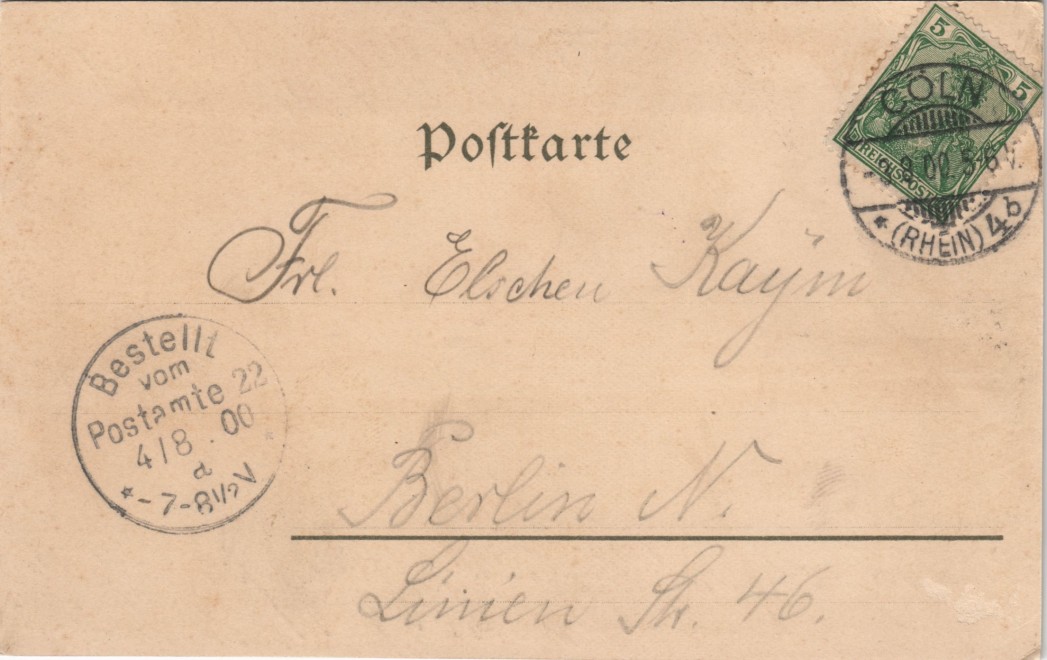 5 5
REICHSPOST
CÖLN
8.00 5-6 V.
* (RHEIN) 4b
Poſtkarte
Frl. Elschen Kaÿm
Bestellt
vom
Postamte 22
4/8. 00
a
*-7-8½V
Berlin N.
Linien Str. 46.